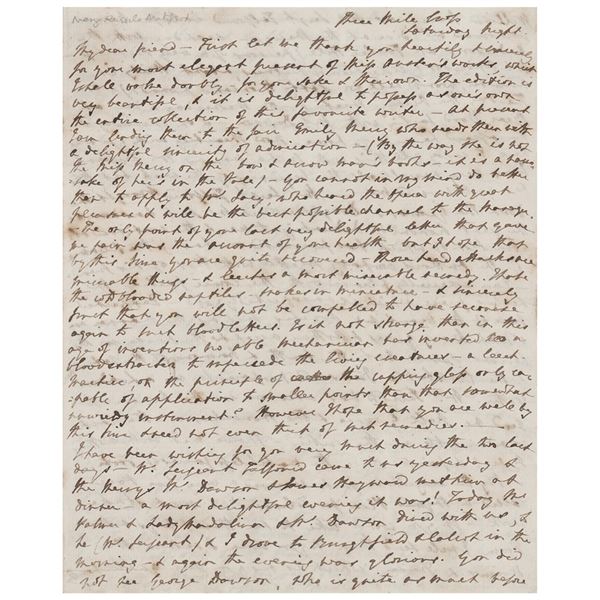 Mary Russell Mitford
Three Mile Cross
Saturday Night.
My dear friend — First let me thank you heartily & sincerely
for your most elegant present of Miss Austen's works which
I shall value doubly for your sake & their own. The edition is
very beautiful, & it is delightful to possess as one's own
the entire collection of this favourite writer — At present
I am lending them to the fair Emily Merry who reads them with
a delightful sincerity of admiration — (By the way she is not
the Miss Merry on the books — it is a name
-sake of her's in the Vale) — You cannot in my mind do better
than to apply to Mr. who heard the Opera with great
pleasure & will be the best possible channel to the Manager.
The only point of your last very delightful letter that gave
me pain, was the account of your health, but I hope that
by this time you are quite recovered — Those head attacks are
miserable things — & leeches a most miserable remedy. Those
the coldblooded reptiles. Snakes in miniature — & sincerely
trust that you will not be compelled to have recourse
again to such bloodletters. Is it not strange that in this
age of inventions no able mechanician has invented a
bloodextractor to supersede the living creatures — a leech-
practice on the principle of the cupping glass only ca-
pable of application to smaller points than that somewhat
unwieldy instrument? However I hope that you are well by
this time & need not even think of such remedies. —
I have been wishing for you very much during the two last
days — Mr. Serjeant Talfourd came to us yesterday &
the Merrys Mr. Dawson & James Hayward met him at
dinner — a most delightful evening it was! Today Mr.
Palmer & Lady Madalina & Mr. Dawson dined with us, &
he (Mr. Serjeant) & I drove to Burghfield & called in the
morning — & again the evening was glorious. You did
not see George Dawson, who is quite as much before